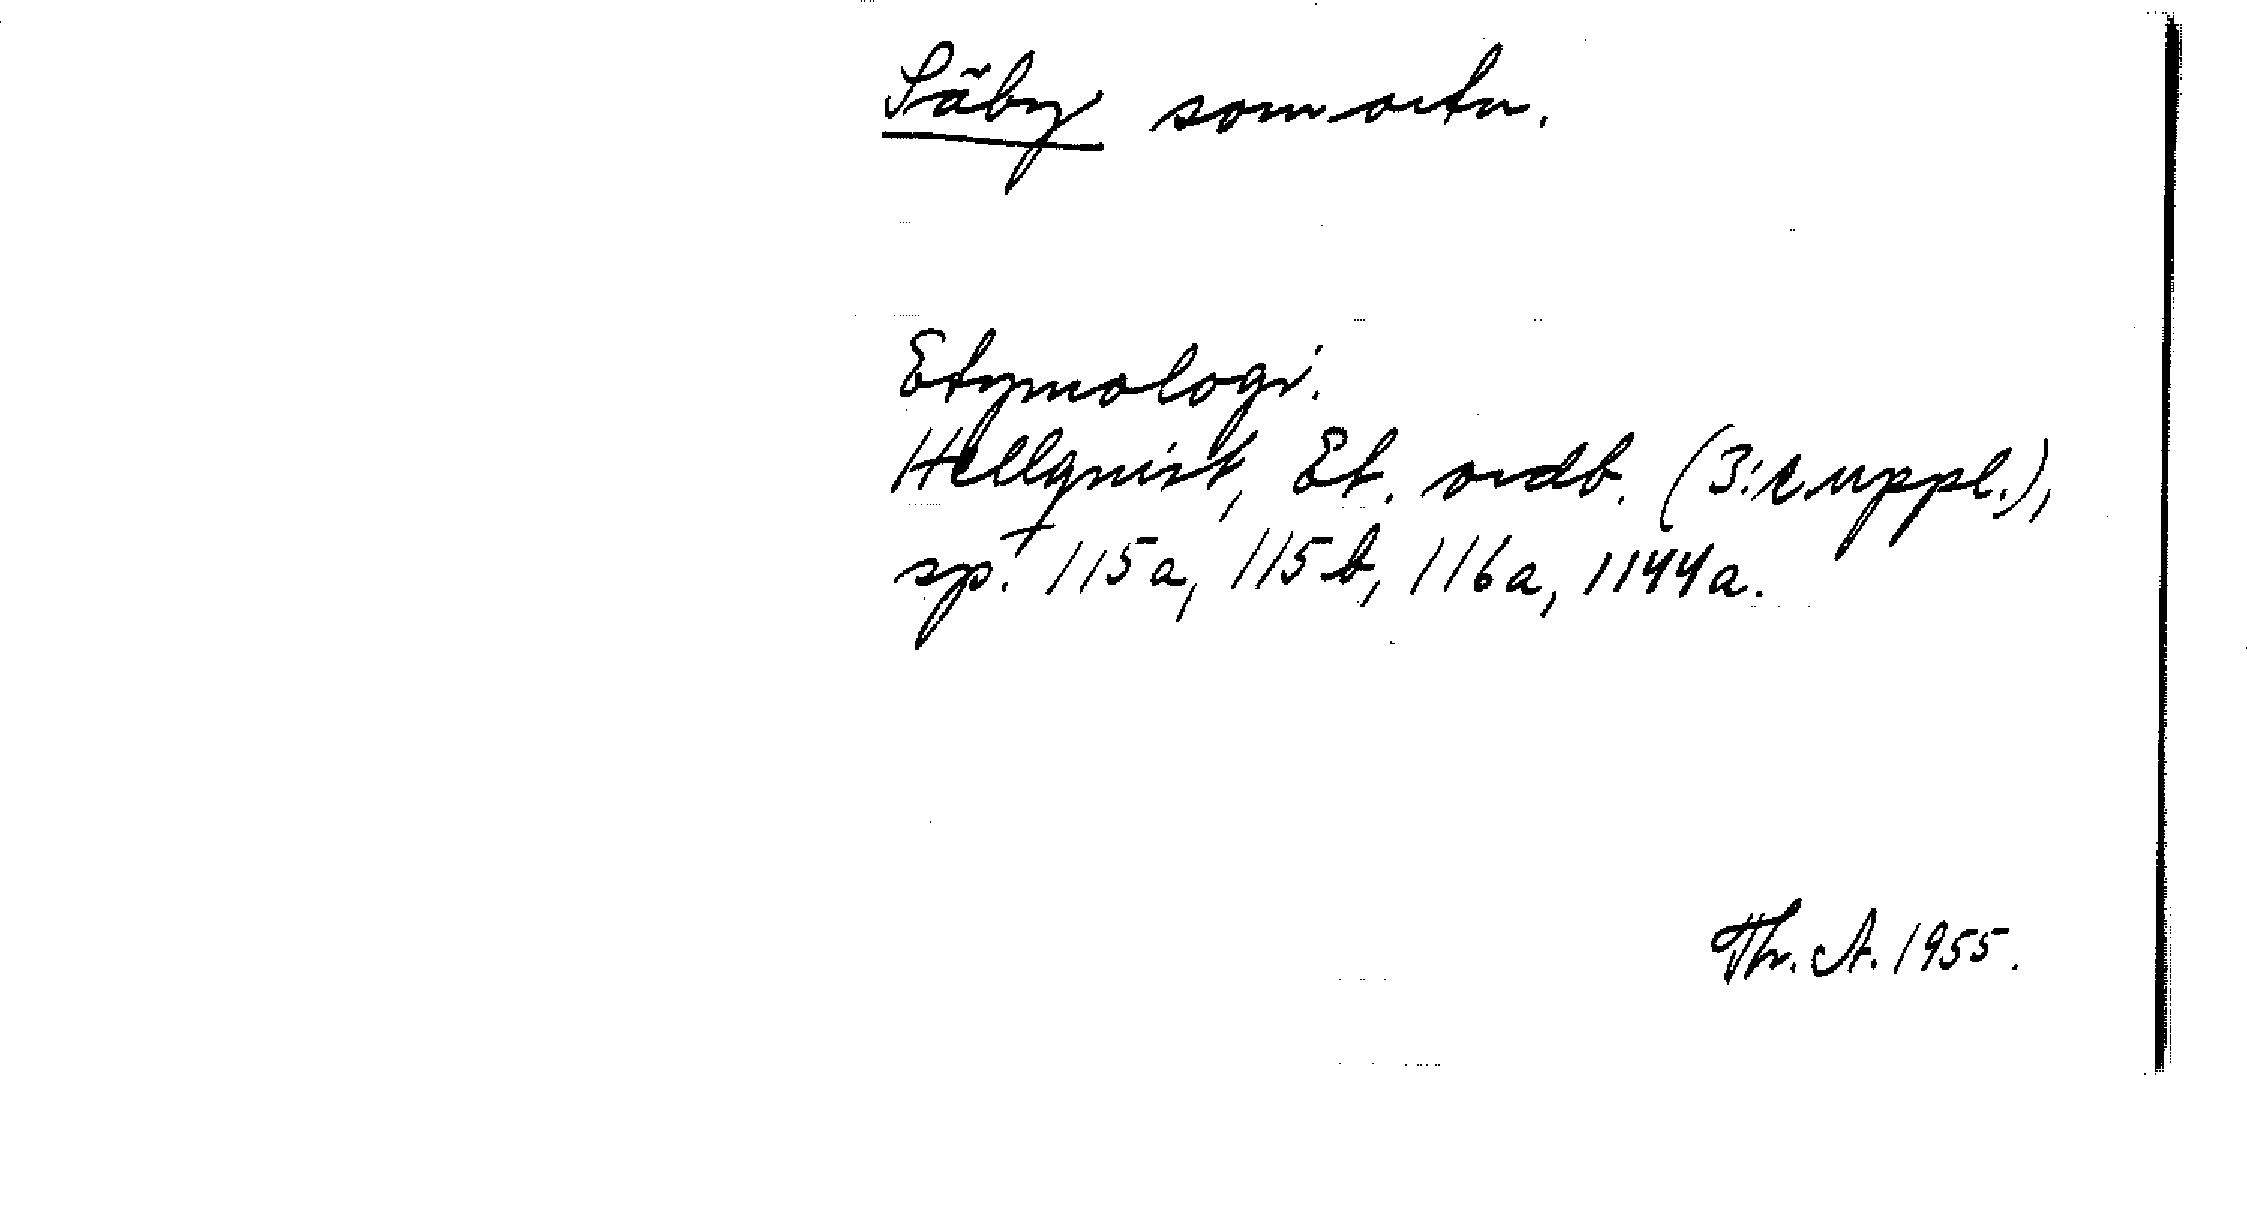 Säby som ortn.
Etymologi.
Hellquist, Et. ordb. (3:e uppl.),
sp. 115a, 115b, 116a, 1144a.
Thr. A. 1955.